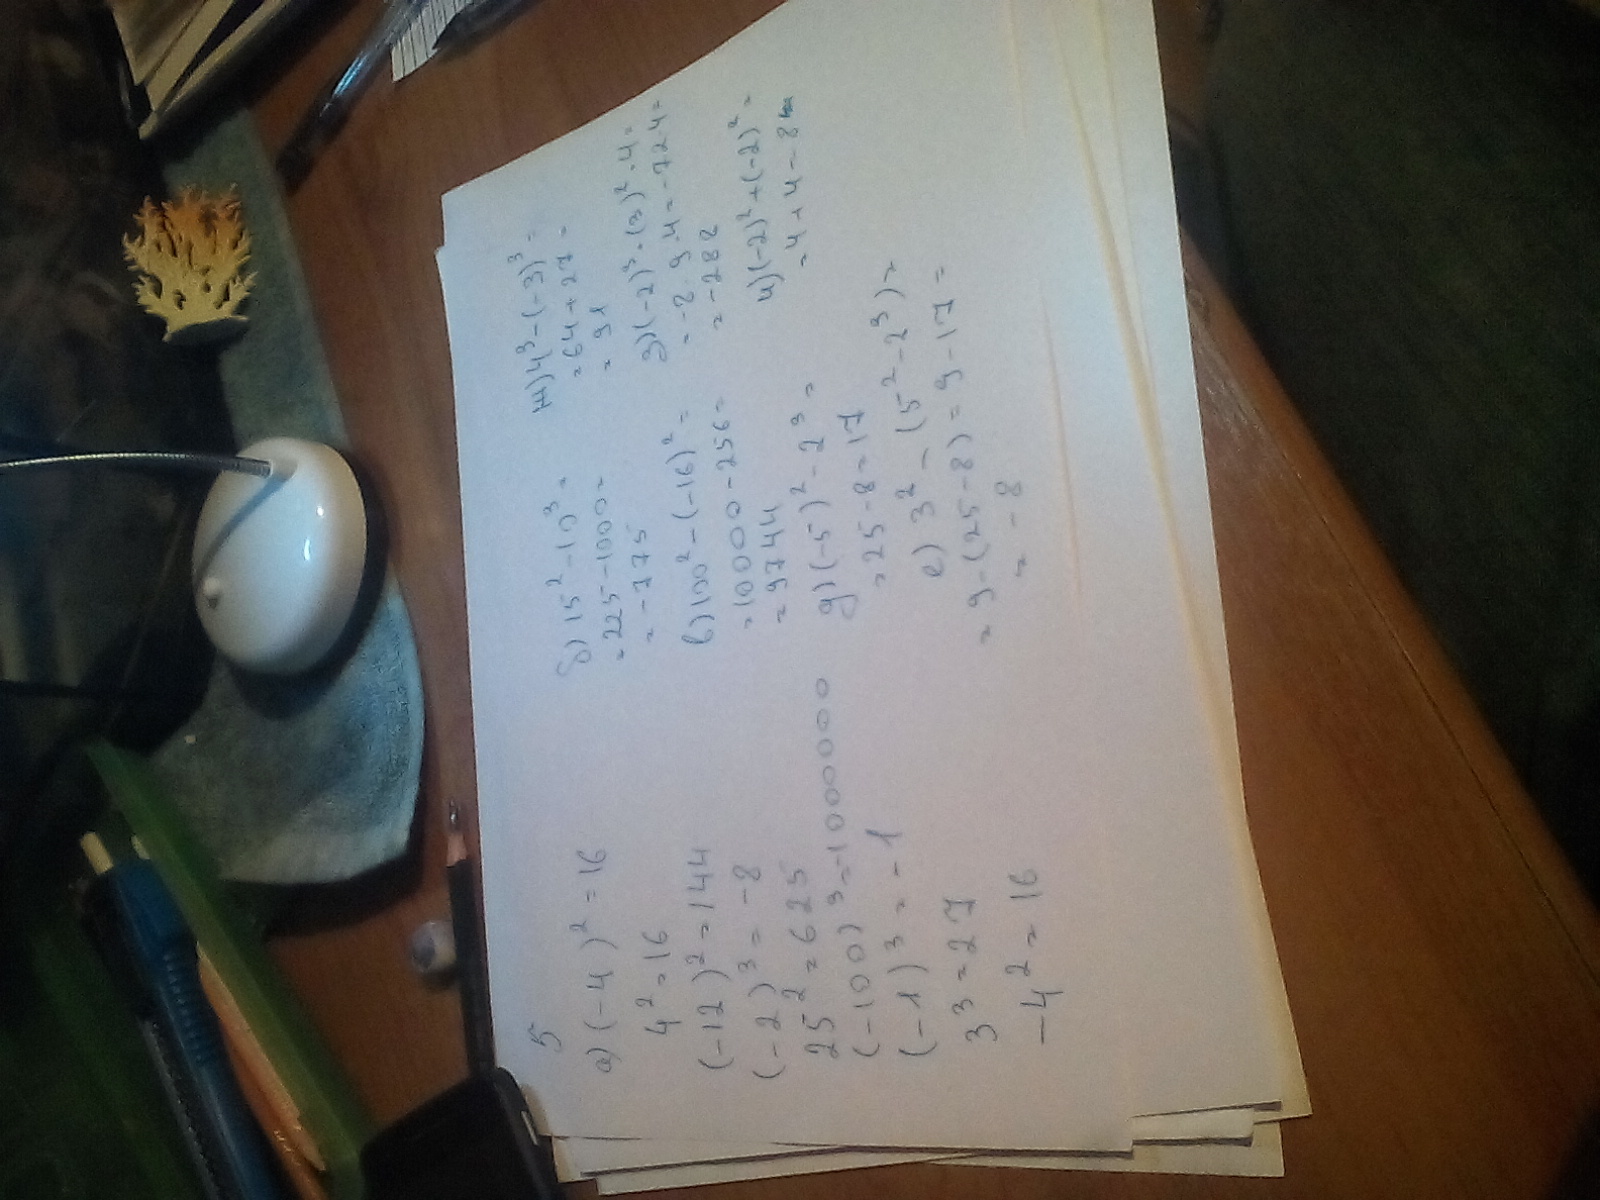 5
а) (-4)² = 16
4² = 16
(-12)² = 144
(-2)³ = -8
25² = 625
(-100)³ = -1000000
(-1)³ = -1
3³ = 27
-4² = 16
б) 15² - 10³ =
= 225 - 1000 =
= -775
в) 100² - (-16)² =
= 10000 - 256 =
= 9744
д) (-5)² - 2³ =
= 25 - 8 = 17
е) 3² - (5² - 2³) =
= 9 - (25 - 8) = 9 - 17 =
= -8
ж) 4³ - (-3)³ =
= 64 + 27 =
= 91
з) (-2)³ · (3)² · 4 =
= -8 · 9 · 4 = -72 · 4 =
= -288
и) (-2)² + (-2)² =
= 4 + 4 = 8